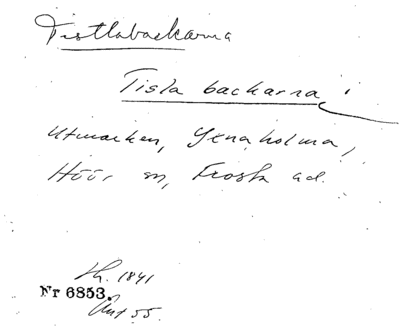 Tistlabackarna
Tisla backarna
Utmarken, Yxnaholma,
Höör sn, Frosta hd.
Sk. 1841
Nr 6853.
Ant 55.